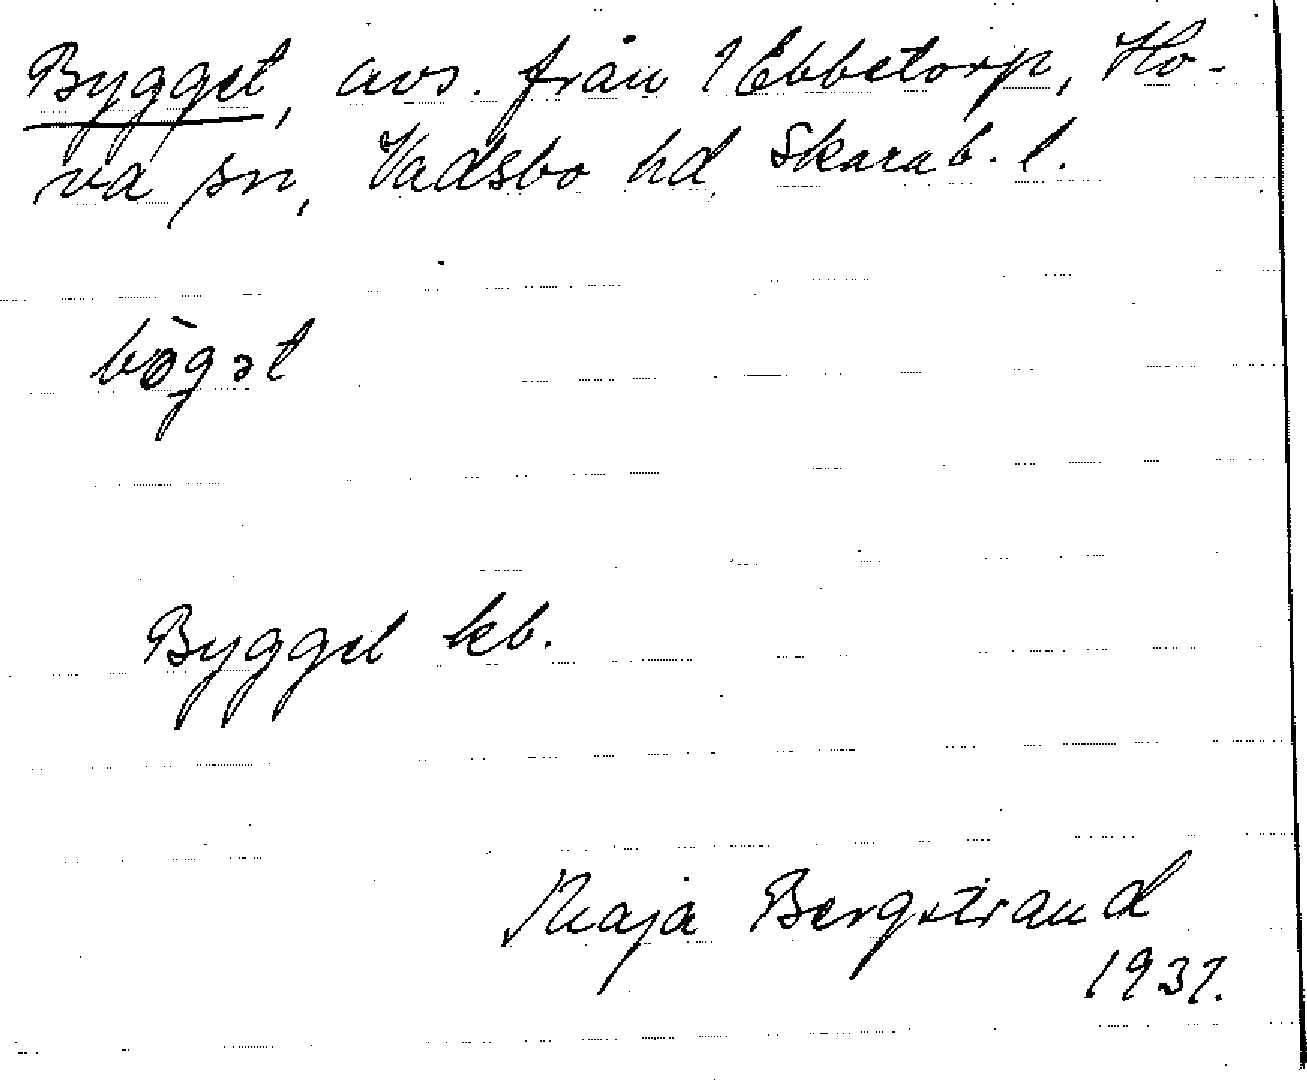 Bygget, avs. från 1 Ebbetorp, Ho-
va sn, Vadsbo hd Skarab. l.
bògət
Bygget kb.
Maja Bergstrand
1937.